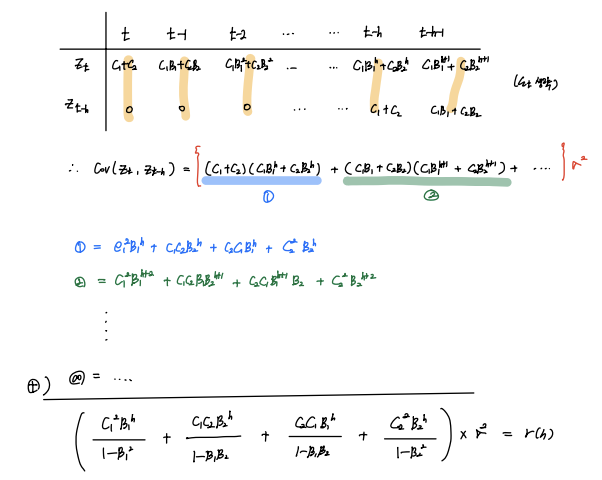 t t-1 t-2 ... ... t-h t-h-1
Z_t C₁+C₂ C₁B₁+C₂B₂ C₁B₁²+C₂B₂² ... ... C₁B₁^h+C₂B₂^h C₁B₁^{h+1}+C₂B₂^{h+1}
Z_{t-h} 0 0 0 ... ... C₁+C₂ C₁B₁+C₂B₂
∴ Cov(Z_t, Z_{t-h}) = { (C₁+C₂)(C₁B₁^h+C₂B₂^h) + (C₁B₁+C₂B₂)(C₁B₁^{h+1}+C₂B₂^{h+1}) + .... } σ²
① ②
① = C₁²B₁^h + C₁C₂B₂^h + C₂C₁B₁^h + C₂²B₂^h
② = C₁²B₁^{h+2} + C₁C₂B₁B₂^{h+1} + C₂C₁B₁^{h+1}B₂ + C₂²B₂^{h+2}
⋮
⊕) ∞ = ....
( C₁²B₁^h/(1-B₁²) + C₁C₂B₂^h/(1-B₁B₂) + C₂C₁B₁^h/(1-B₁B₂) + C₂²B₂^h/(1-B₂²) ) × σ² = r(h)